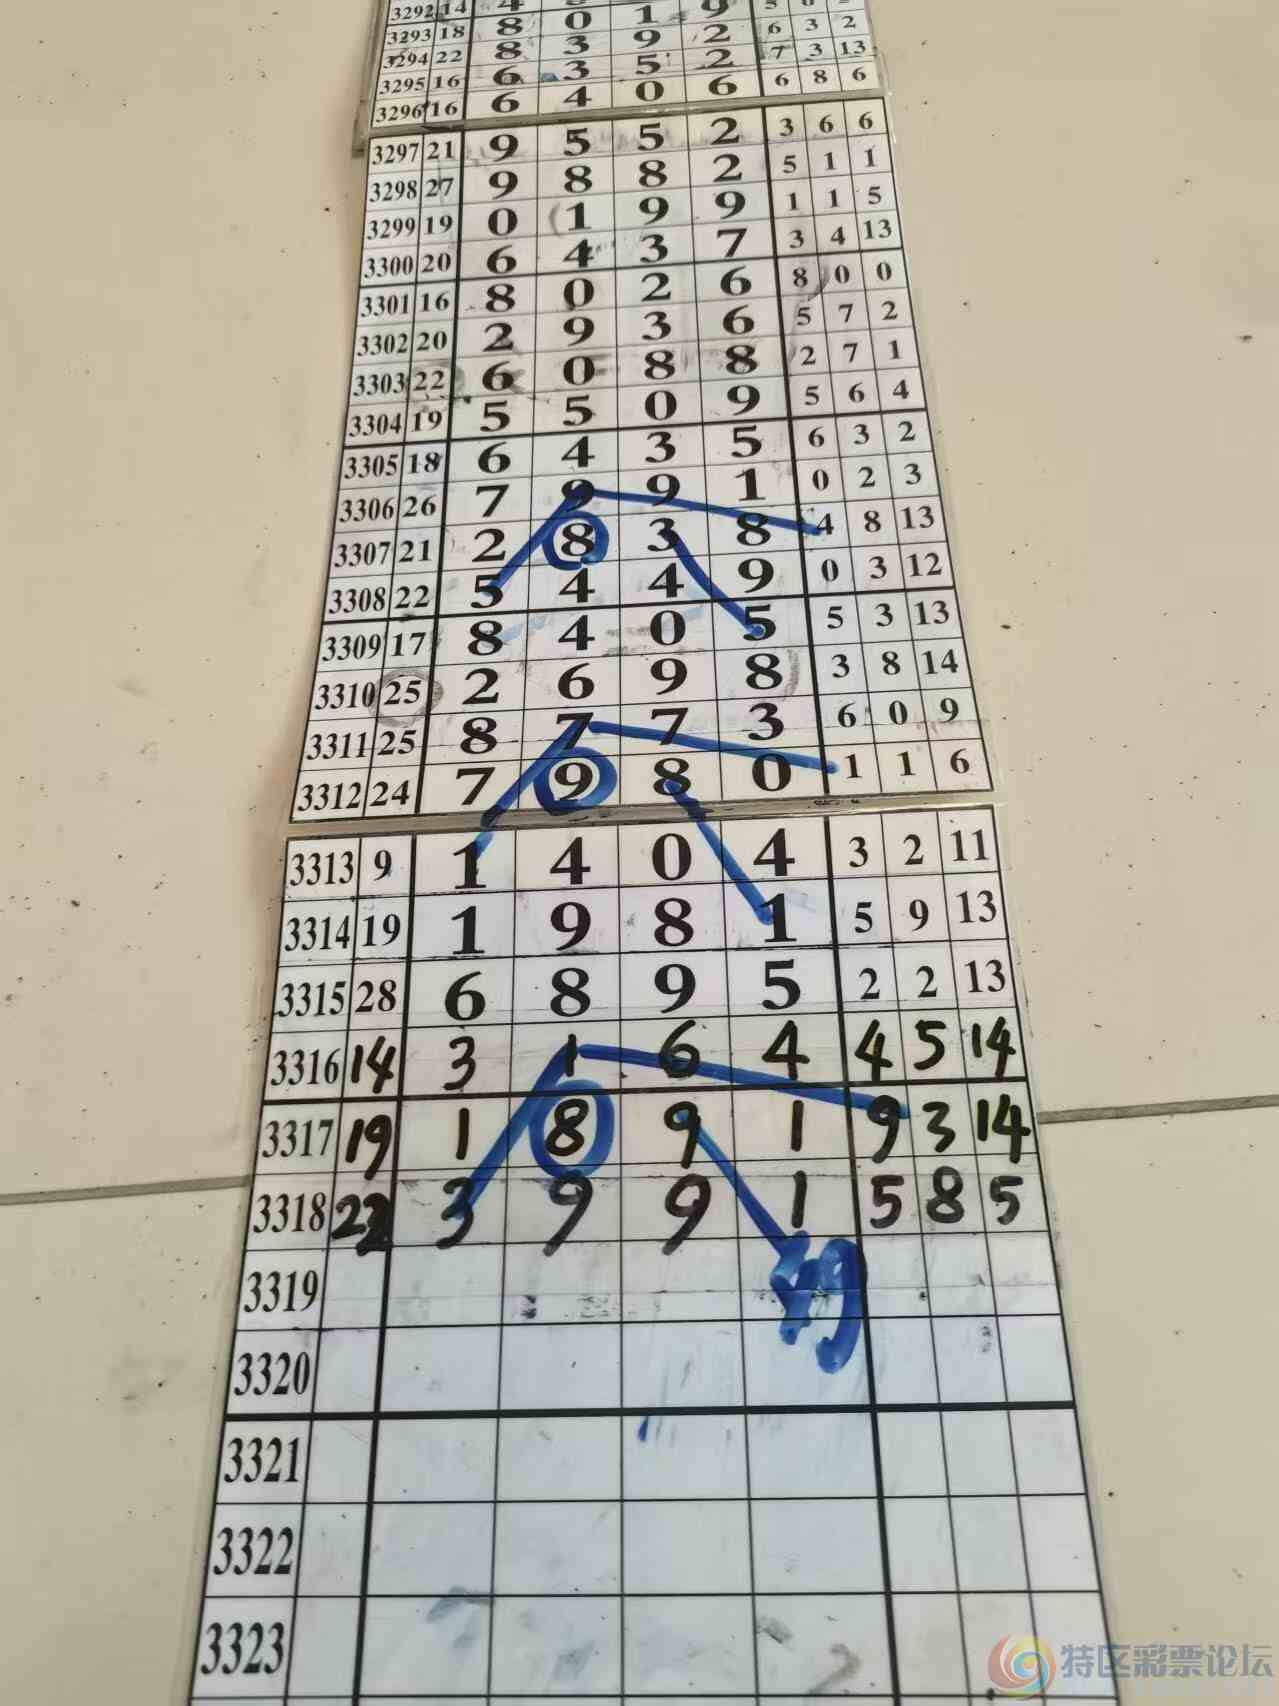 3292 14
3293 18 8 0 1 9 6 3 2
3294 22 8 3 9 2 7 3 13
3295 16 6 3 5 2 6 8 6
3296 16 6 4 0 6
3297 21 9 5 5 2 3 6 6
3298 27 9 8 8 2 5 1 1
3299 19 0 1 9 9 1 1 5
3300 20 6 4 3 7 3 4 13
3301 16 8 0 2 6 8 0 0
3302 20 2 9 3 6 5 7 2
3303 22 6 0 8 8 2 7 1
3304 19 5 5 0 9 5 6 4
3305 18 6 4 3 5 6 3 2
3306 26 7 9 9 1 0 2 3
3307 21 2 8 3 8 4 8 13
3308 22 5 4 4 9 0 3 12
3309 17 8 4 0 5 5 3 13
3310 25 2 6 9 8 3 8 14
3311 25 8 7 7 3 6 0 9
3312 24 7 9 8 0 1 1 6
3313 9 1 4 0 4 3 2 11
3314 19 1 9 8 1 5 9 13
3315 28 6 8 9 5 2 2 13
3316 14 3 1 6 4 4 5 14
3317 19 1 8 9 1 9 3 14
3318 22 3 9 9 1 5 8 5
3319
3320
3321
3322
3323
特区彩票论坛